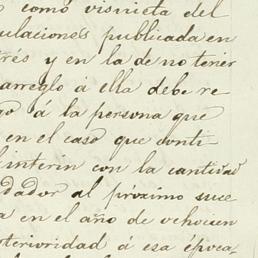 como visnieta del
ulaciones publicada en
trés y en la de no tener
arreglo á ella debe re
go á la persona que
en el caso que conti
l interin con la cantidad
dador al próximo suce
a en el año de vchocien
terioridad á esa época